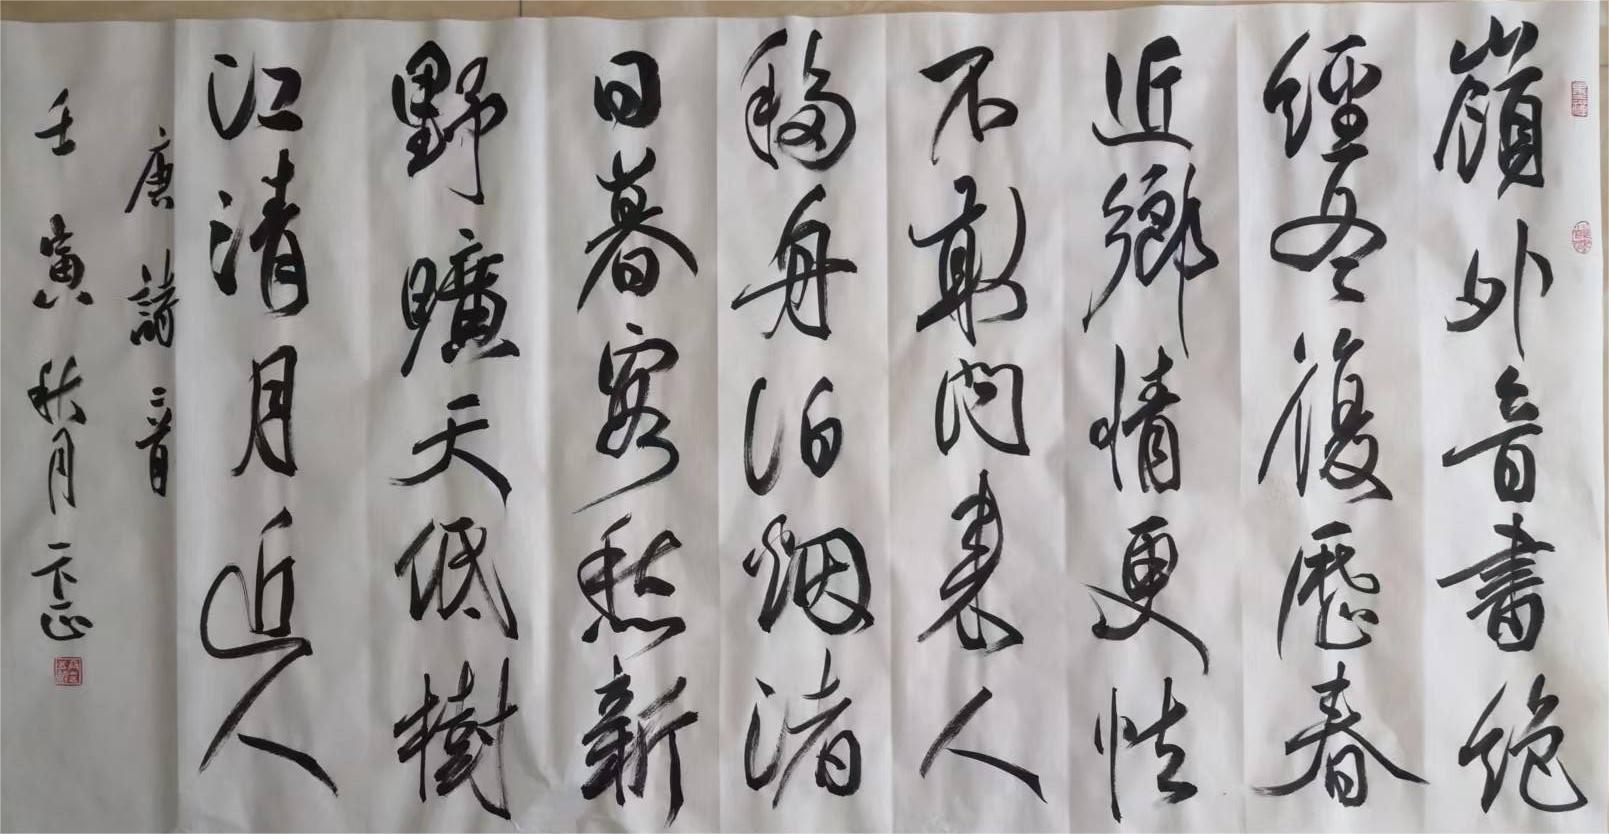 嶺外音書絶
經冬復歷春
近鄉情更怯
不敢問來人
移舟泊烟渚
日暮客愁新
野曠天低樹
江清月近人
唐詩二首
壬寅秋月卞正